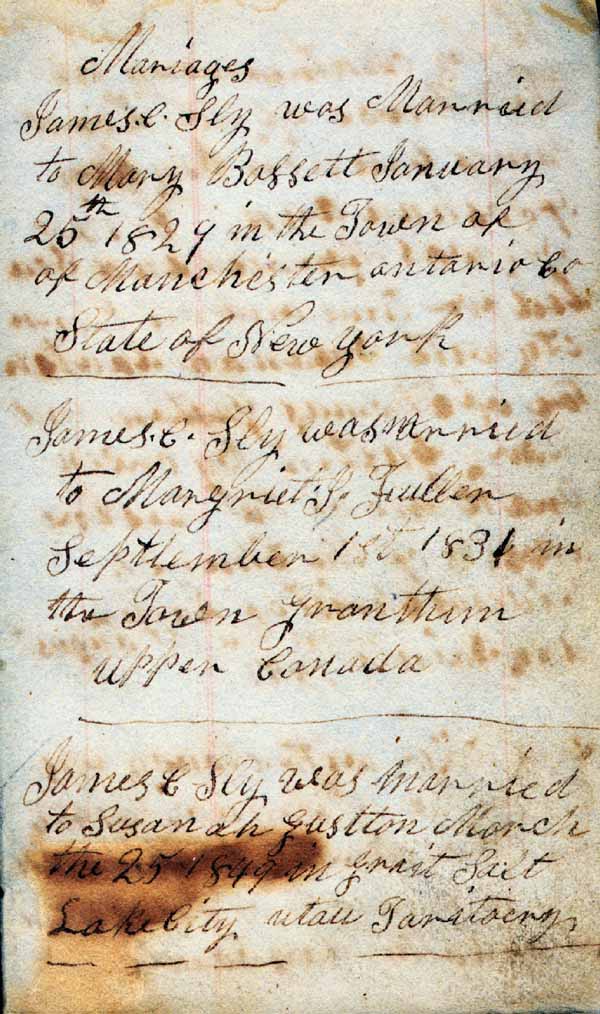 Mariages
James.C. Sly was Married
to Mary Bassett January
25th 1829 in the Town of
of Manchester antario Co
State of New york
James.C. Sly was Marriied
to Margriet. S. Fuller
Septtember 1st 1831 in
the Town granthum
upper Canada
James C Sly was married
to Susanah gustton March
the 25 1849 in grait Salt
Lake City utau Taritoery